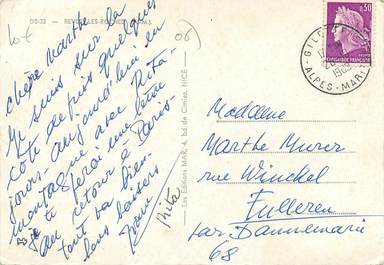 10€
06)
chère Marthe
Je suis sur la
côte depuis quelques
jours. aujourd'hui en
montagne avec Rita.
je ferai une lettre
au retour à Paris
tout va bien
bons baisers
Rita
Les Editions MAR, 4, bd de Cimiez, NICE
0,30
REPUBLIQUE FRANÇAISE
ALPES-MAR
Madame
Marthe Murer
rue Winckel
Fulleren
par Dannemarie
68